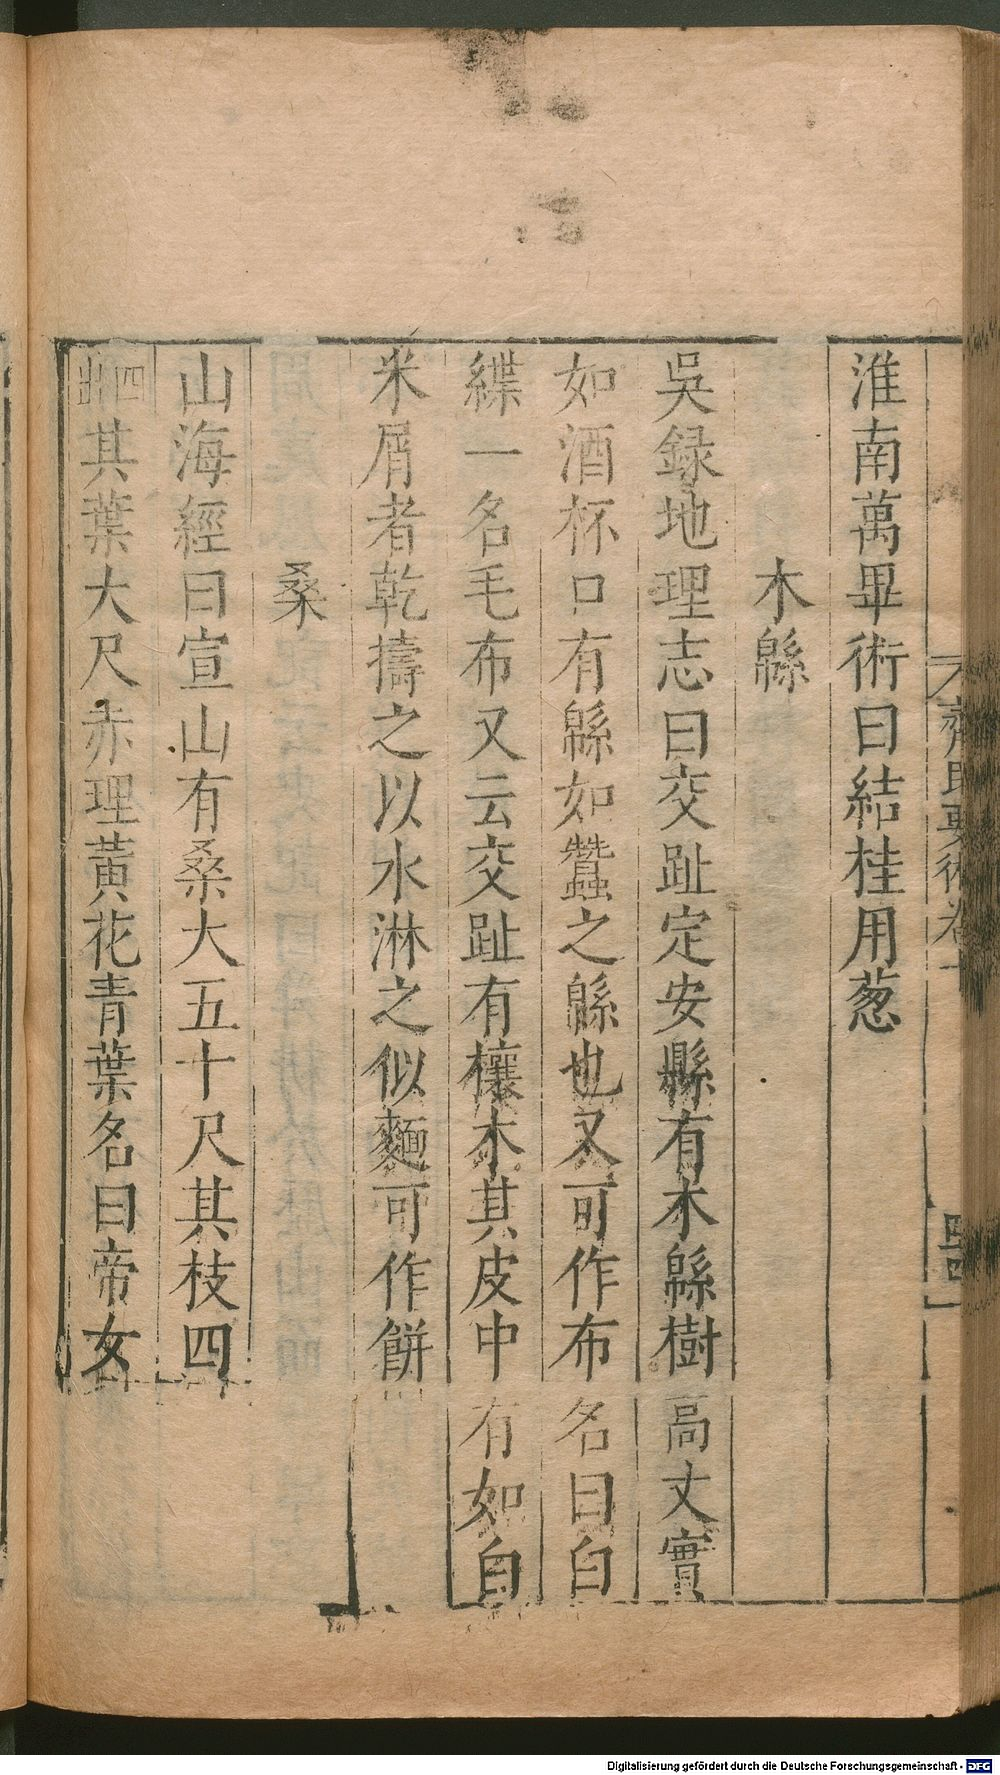 齊民要術卷十
淮南萬畢術曰結桂用葱
木緜
吳録地理志曰交趾定安縣有木緜樹高丈實
如酒杯口有緜如蠶之緜也又可作布名曰白
緤一名毛布又云交趾有欀木其皮中有如白
米屑者乾擣之以水淋之似麵可作餅
桑
山海經曰宣山有桑大五十尺其枝四
四出其葉大尺赤理黃花青葉名曰帝女
Digitalisierung gefördert durch die Deutsche Forschungsgemeinschaft - DFG